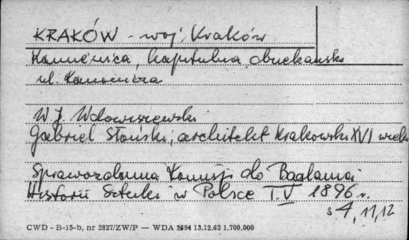 KRAKÓW - woj. Kraków
Kamienica, kapitulna
ul. Kanonicza
W J. Wdowiszewski
Gabriel Słoński, architekt krakowski XVI wieku
Sprawozdania Komisji do Badania
Historii Sztuki w Polsce T.V 1896 r.
s 4, 11, 12
CWD - B-15-b, nr 2827/ZW/P — WDA 2694 13.12.62 1.700,000